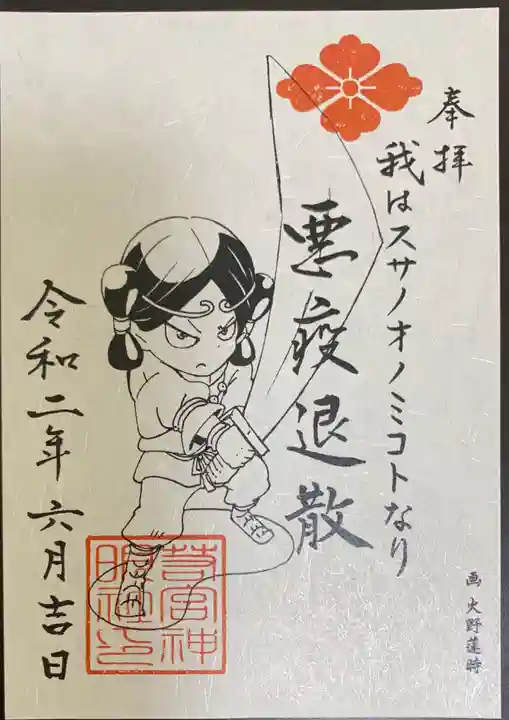 奉拝
我はスサノオノミコトなり
悪疫退散
令和二年六月吉日
芳宮神
明社印
画 大野蓮時